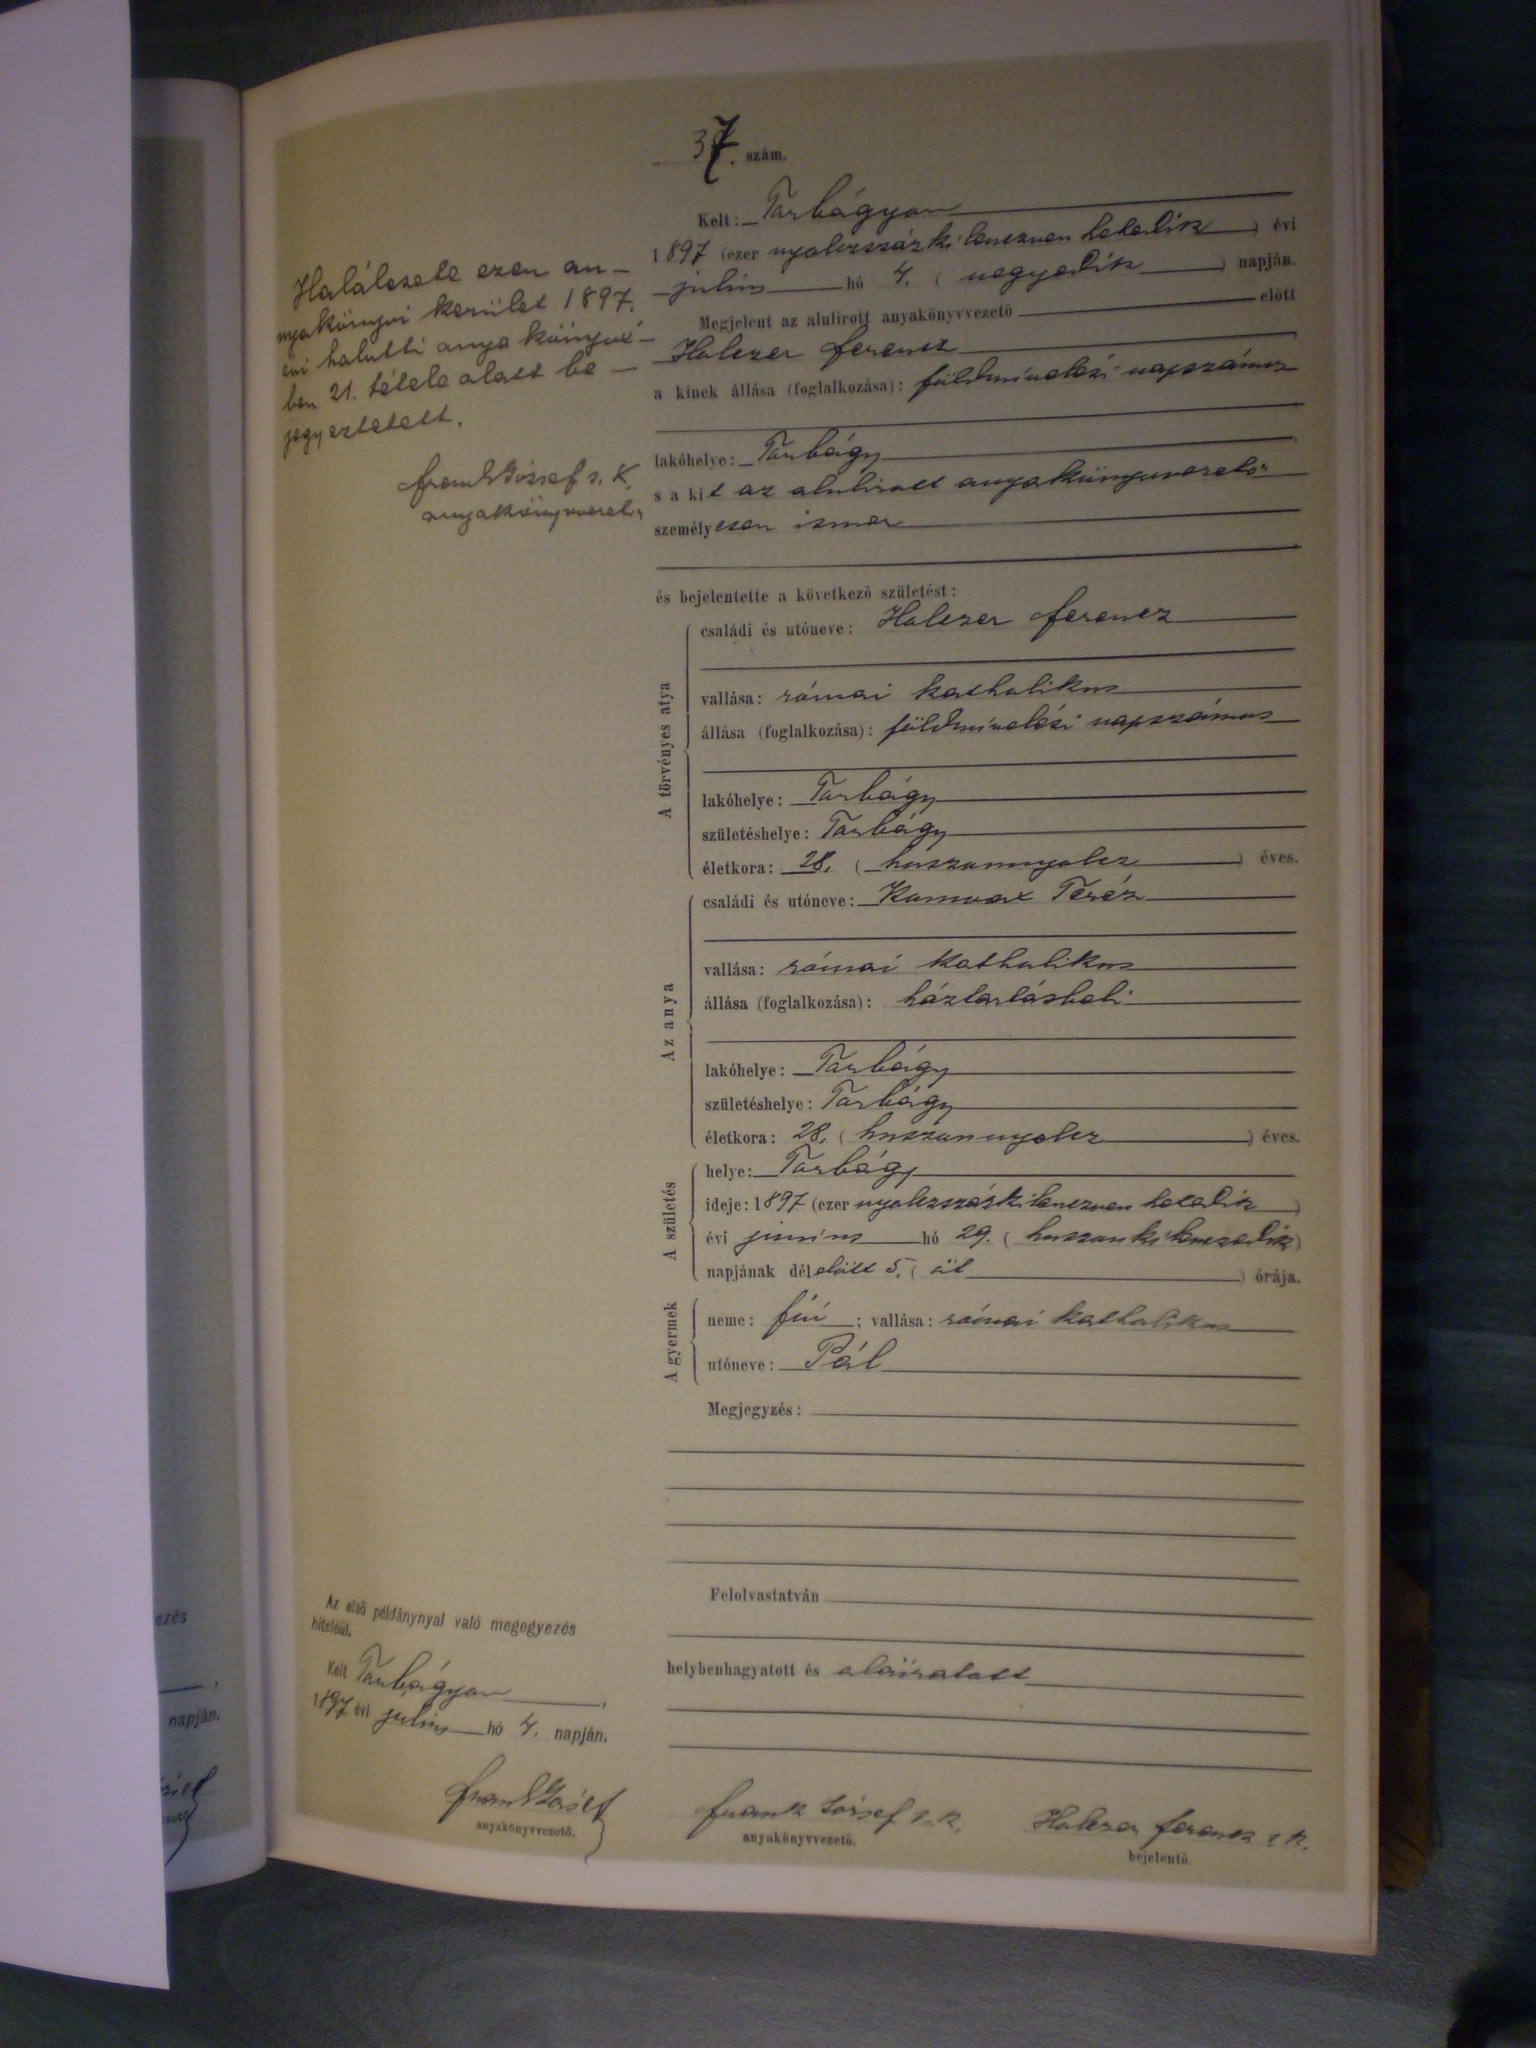 37. szám.
Kelt: Torbágyon
1897 (ezer nyolczszázkilenczven hetedik) évi
julius hó 4. (negyedik) napján.
Megjelent az alulirott anyakönyvvezető előtt
Holczer Ferencz
a kinek állása (foglalkozása): földmívelési napszámos
lakóhelye: Torbágy
s a kit az alulirott anyakönyvvezető
személyesen ismer
és bejelentette a következő születést:
A törvényes atya
családi és utóneve: Holczer Ferencz
vallása: római katholikus
állása (foglalkozása): földmívelési napszámos
lakóhelye: Torbágy
születéshelye: Torbágy
életkora: 28. (huszonnyolcz) éves.
Az anya
családi és utóneve: Teréz
vallása: római katholikus
állása (foglalkozása): háztartásbeli
lakóhelye: Torbágy
születéshelye: Torbágy
életkora: 28. (huszonnyolcz) éves.
A születés
helye: Torbágy
ideje: 1897 (ezer nyolczszázkilenczven hetedik)
évi junius hó 29. (huszonkilenczedik)
napjának délelőtt 5. (öt) órája.
A gyermek
neme: fiú; vallása: római katholikus
utóneve: Pál
Megjegyzés:
Felolvastatván
helybenhagyatott és aláiratott
Frank József s. k.
anyakönyvvezető.
Holczer Ferencz s. k.
bejelentő.
Halálesete ezen an-
nyakönyvi kerület 1897.
évi halotti anyakönyvé-
ben 21. tétele alatt be-
jegyeztetett.
Frank József s. k.
anyakönyvvezető
Az első példánynyal való megegyezés
hiteléül.
Kelt Torbágyon,
1897 évi julius hó 4. napján.
Frank József
anyakönyvvezető.
ezés
napján.